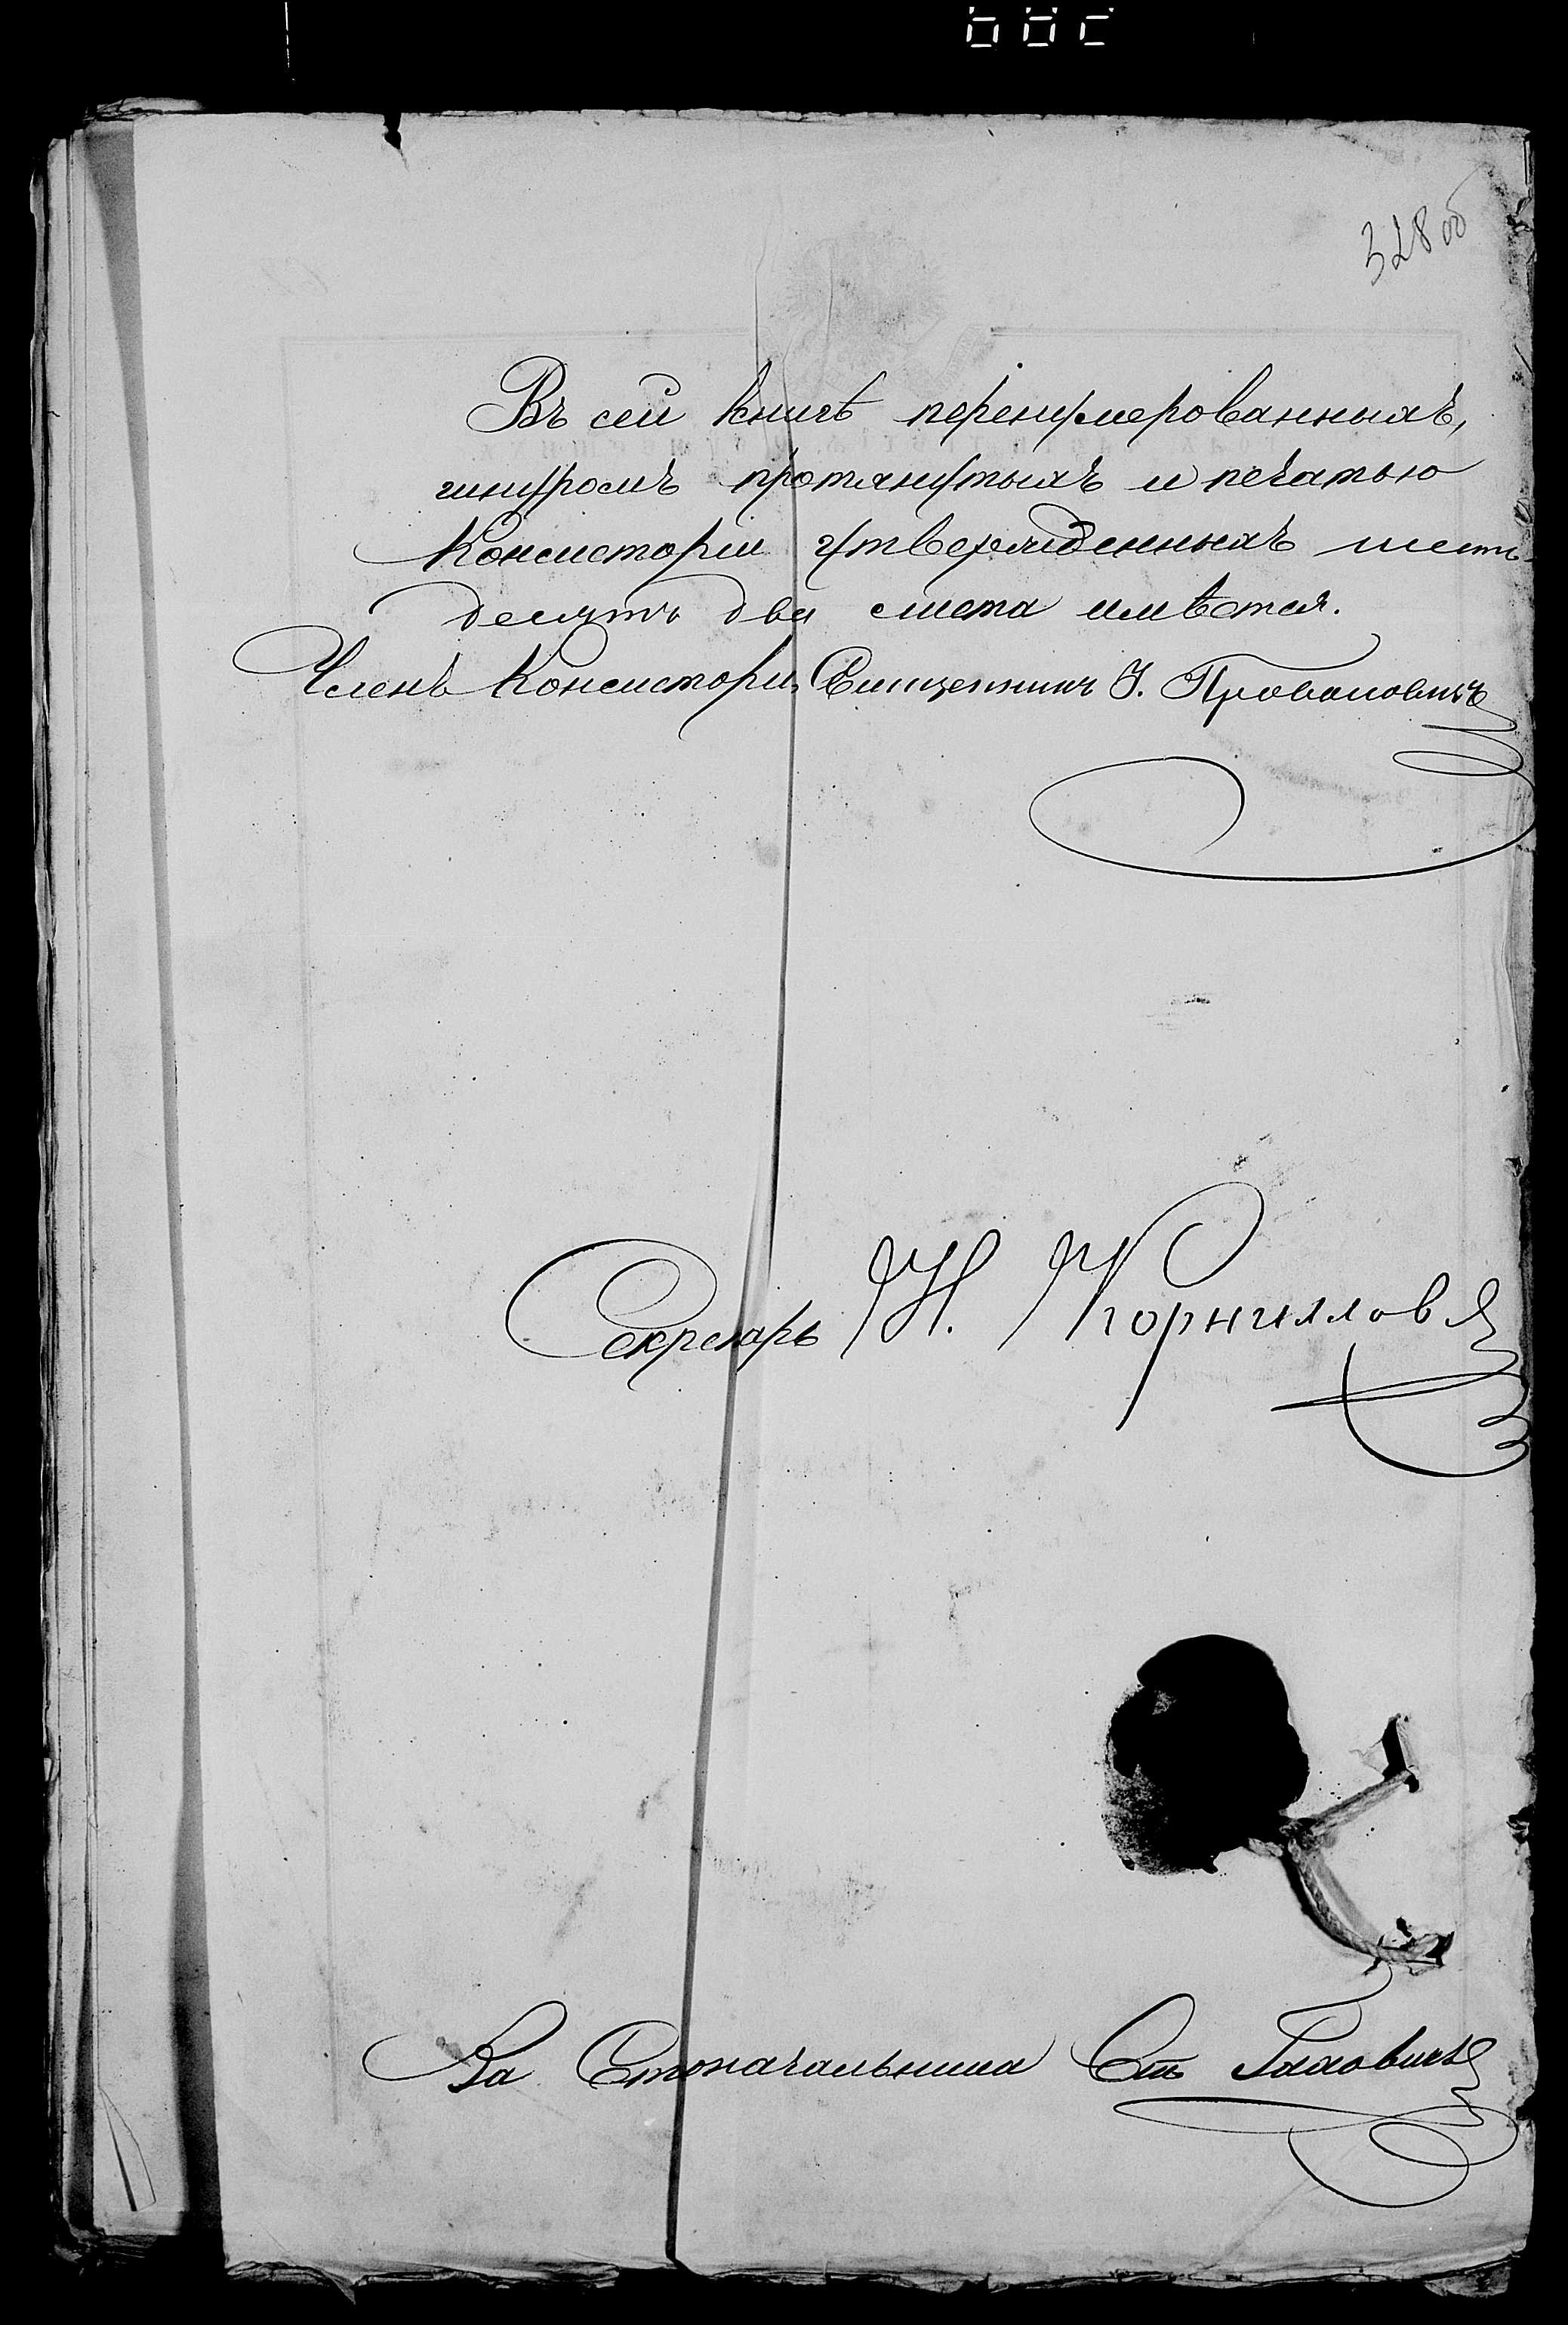 328 об
Въ сей книгѣ перенумерованныхъ,
шнуромъ протянутыхъ и печатью
Консисторіи утвержденныхъ шесть
десятъ два листа имѣется.
Членъ Консисторіи, Священникъ І.
Секретарь Н. Корниловъ
За Столоначальника